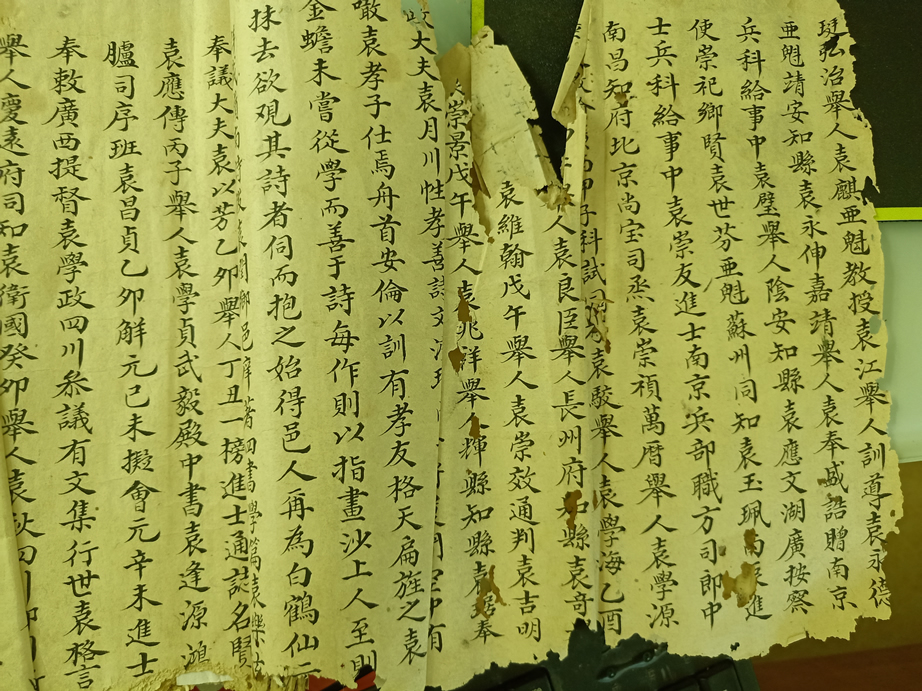 珽弘治舉人袁麒亜魁教授袁江舉人訓導袁永德
亜魁靖安知縣袁永伸嘉靖舉人袁奉盛誥贈南京
兵科給事中袁璧舉人陰安知縣袁應文湖廣按察
使崇祀鄉賢袁世芬亜魁蘇州同知袁玉珮進
士兵科給事中袁崇友進士南京兵部職方司郎中
南昌知府北京尚宝司丞袁崇禎萬曆舉人袁學源
甲子科試袁駿舉人袁學海乙酉
人袁良臣舉人長州府知縣袁奇
袁維翰戊午舉人袁崇效通判袁吉明
崇景戊午舉人袁兆祥舉人輝縣知縣袁奉
大夫袁月川性孝善詩文
噉袁孝子仕焉舟首安倫以訓有孝友格天扁旌之袁
金蟾未嘗從學而善于詩每作則以指畫沙上人至則
抹去欲覌其詩者伺而抱之始得邑人再為白鶴仙
奉議大夫袁以芳乙卯舉人丁丑一榜進士通誌名賢
袁應傳丙子舉人袁學貞武毅殿中書袁逢源鴻
臚司序班袁昌貞乙卯解元己未擬會元辛未進士
奉敕廣西提督袁學政四川叅議有文集行世袁格言
舉人慶遠府司知袁衛國癸卯舉人袁